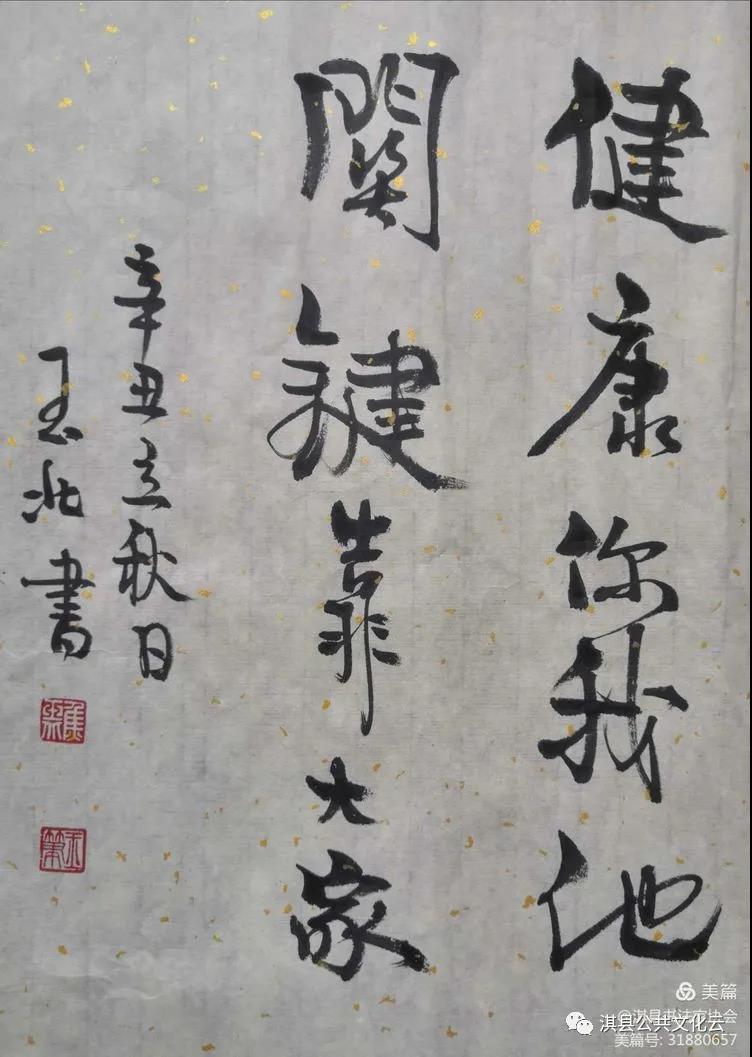 健康你我他
関鍵靠大家
辛丑立秋日
玉北書
美篇
@淇县书法家协会
淇县公共文化云
美篇号: 31880657